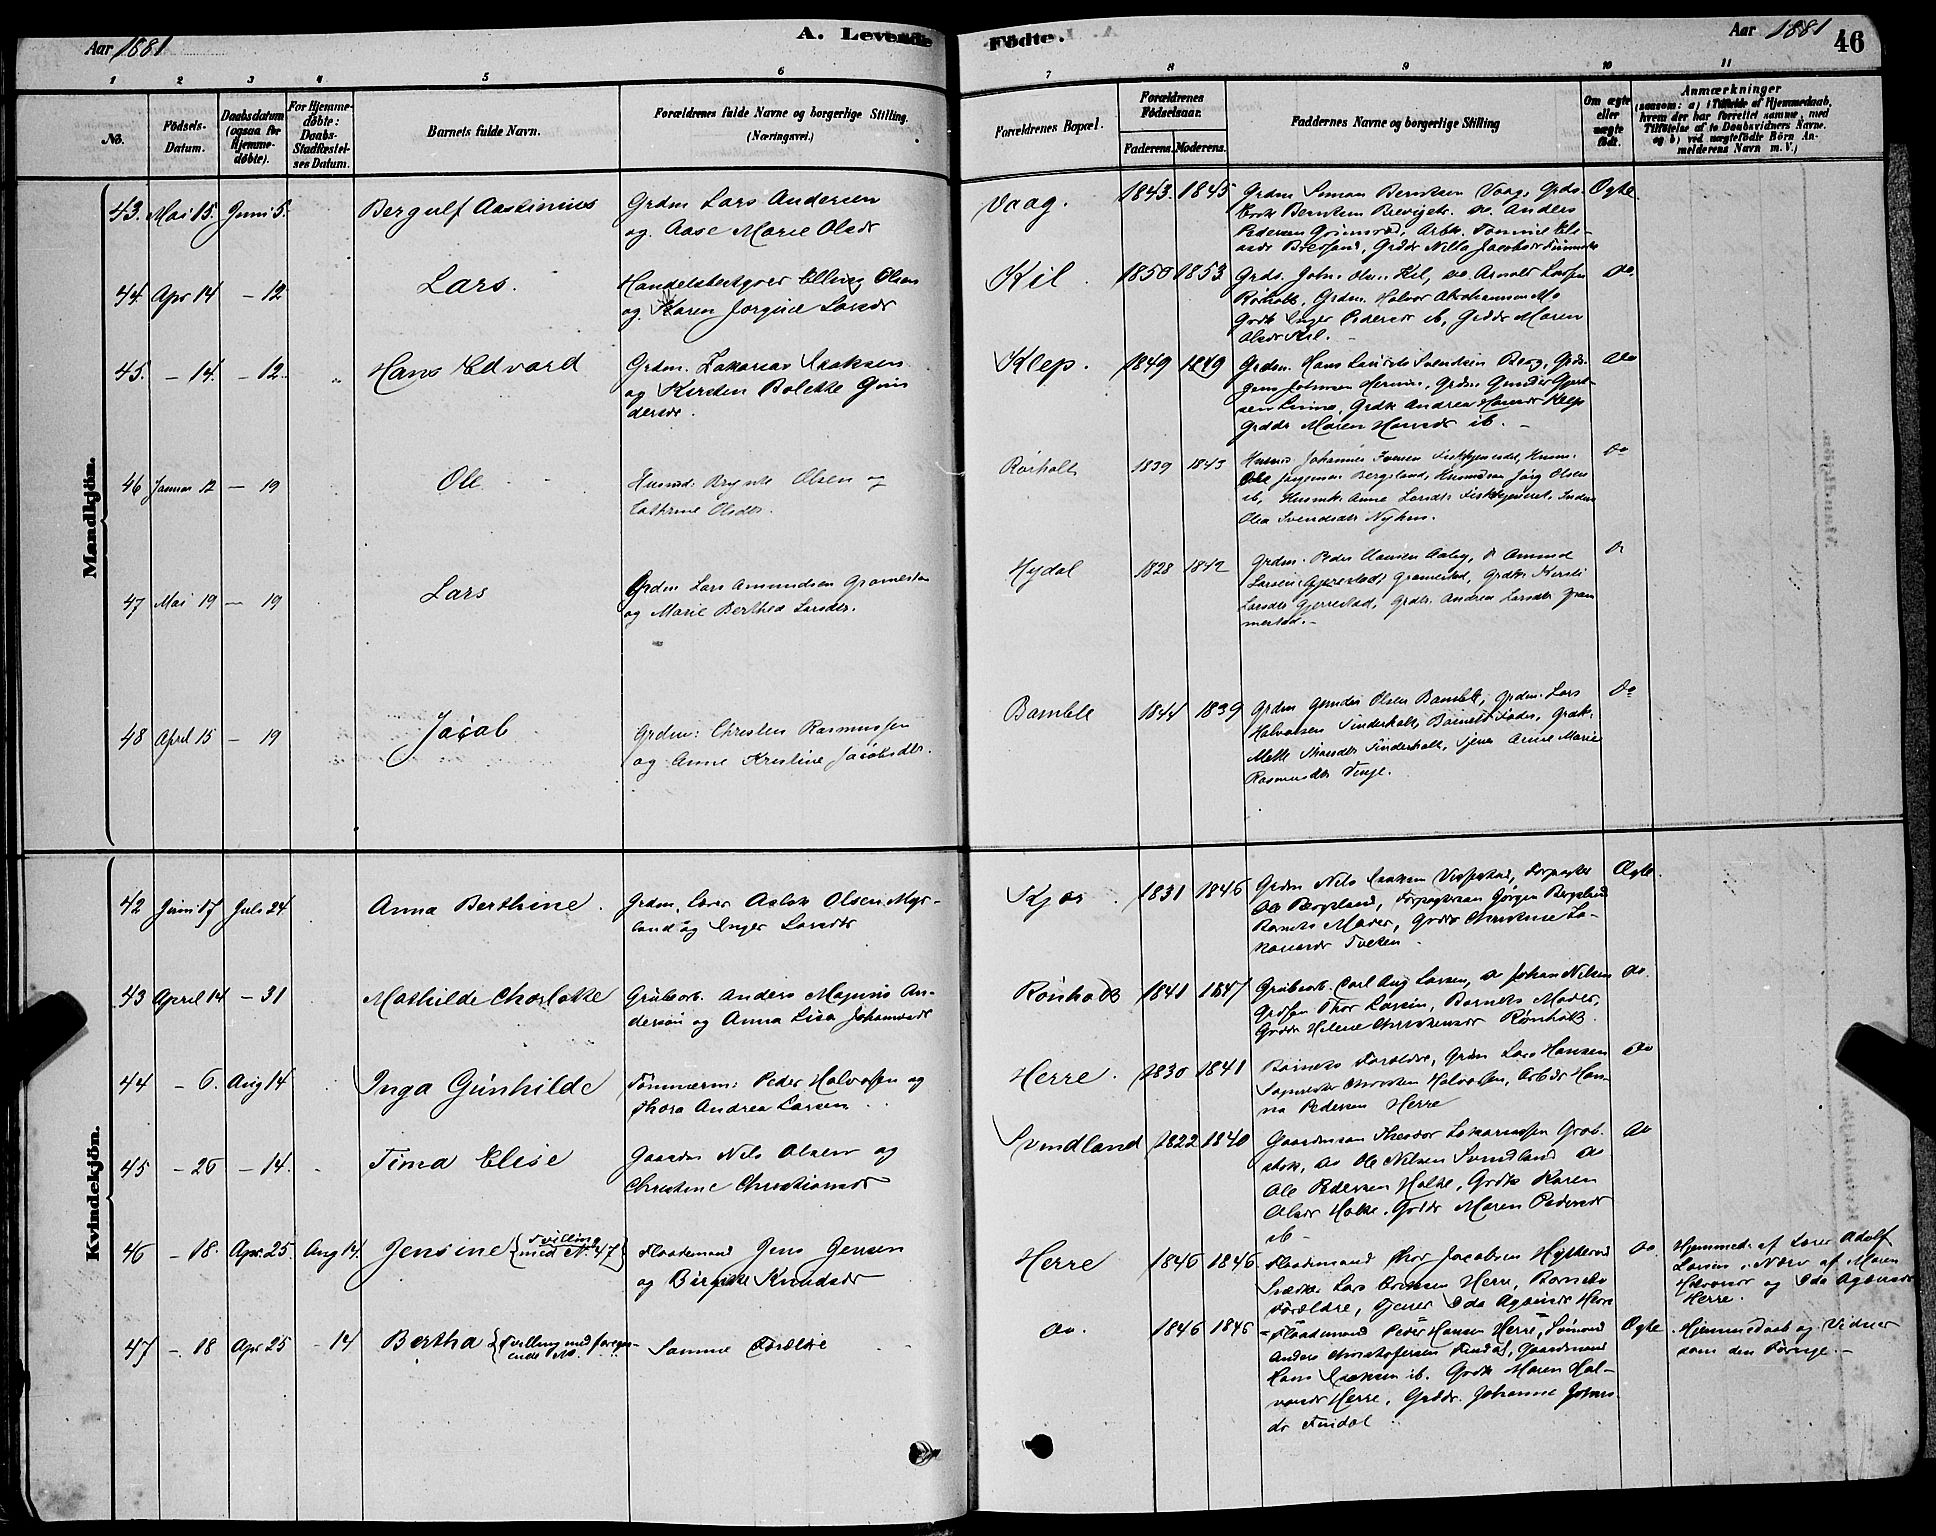 Aar 1881
A. Levende Födte.
Aar 1881
46
1 2 3 4 5 6 7 8 9 10 11
No.
Födsels-Datum.
Daabsdatum (ogsaa for Hjemmedøbte).
For Hjemmedøbte: Daabs-Stadfæstelses Datum.
Barnets fulde Navn.
Forældrenes fulde Navne og borgerlige Stilling. (Næringsvei.)
Forældrenes Bopæl.
Forældrenes Födselsaar.
Faderens. Moderens.
Faddernes Navne og borgerlige Stilling
Om ægte eller uægte födt.
Anmærkninger
(saasom: a) i Tilfælde af Hjemmedaab, hvem der har forrettet samme, med Tilföielse af to Daabsvidners Navne, og b) ved uægtefödte Börn Anmelderens Navn m. V.)
Mandkjön.
43. Mai 15. Juni 5. Bergulf Aastinius
Grdm Lars Andersen
og Aase Marie Olsdr
Vaag. 1843. 1845
Grdm Simon Berntsen Vaag, Grds.
Pedersen Grimsrød,
Ægte.
44. Apr 14 - 12 Lars.
Handelsbestyrer Elling Olsen
og Karen Jorgine Larsdr
Kil. 1850 1853
Grds. John Olsn. Kil, do Arnold Larsen
Rörholt, Grdm. Halvor Abrahamsen Mo
Grdk Inger Pedersdr ib, Grddr Maren
Olsdr Kil.
Do.
45. - 14. - 12. Hans Edvard
Grdm. Zakarias Isaksen
og Kirsten Bolette Gun
dersdr.
Klep. 1849 1849
Grdm. Hans Laurits Svendsen Berg, Grds.
Grdk Andrea Hansdr Klep
Grddr Maren Hansdr ib.
Do
46 Januar 12 - 19 Ole
Husmd. Brynte Olsen og
Cathrine Olsdr.
Rörholt 1839 1843
Husmd Johannes Iversen
Ole Jörgensen Bergsland, Husmdsøn Jörg Olsen
ib, Husmk. Anne Larsdr
Olea Svendsdr Nyhus.
Do
47 Mai 19 - 19 Lars
Grdm Lars Amundsen Gromestad
og Marie Berthea Larsdr.
Hydal 1828 1842
Grdm. Peder Hansen Aaby, Do Amund
Larsen Gromestad, Grdk. Kirsti
Larsdr Gjerrestad, Grddr. Andrea Larsdr Gram
mestad.
Do
48 April 15 - 19 Jacob
Grdm: Christen Rasmussen
og Anne Kristine Jacobsdr.
Bamble 1844 1839
Grdm Gunder Olsen Bamble, Grdm. Lars
Halvorsen Tinderholt, Barnets Fader, Grdk.
Mette Tinderholt, Tjener Anne Marie
Rasmusdr Vinje.
Do
Kvindekjön.
42 Juni 17 Juli 24 Anna Berthine.
Grdm. Lars Aslak Olsen Myr-
land og Inger Larsdr
Kjær 1831 1846
Grdm Nils Isaksen Vissestad, Forpagter
Ole Bergsland, Forpagtersøn Jörgen Bergsland
Barnets Moder, Grddr Christine Za-
kariasdr Tveten.
Ægte.
43 April 14 - 31 Mathilde Charlotte
Grubearb. Anders Magnus An-
derson og Anna Lisa Johannesdr
Rönholt 1841 1847
Grubearb. Carl Aug Larsen, do Johan Nilsen
Thor Larsen, Barnets Moder,
Grddr Helene Christensdr Rönholt.
Do.
44 - 6. Aug 14 Inga Gunhilde
Tömmerm: Peder Halvorsen og
Thora Andrea Larsen
Herre. 1830 1841
Barnets Forældre, Grdm Lars Hansen
Sagmester Christen Halvorsen, Arb.dr Han-
na Pedersen Herre
Do
45 - 26 - 14. Tima Elise
Gaardm Nils Olsen og
Christine Christiansdr
Svindland 1822 1840
Gaardmand Theodor Zakariassen Grob-
stok, Do Ole Nilsen Svindland Do
Ole Pedersen Holte, Grdk Karen
Olsdr Holte, Grddr Maren Pedersdr
ib -
Do
46 - 18. Apr. 25 Aug 14. Jensine {Tvilling med No. 47}
Flaademand Jens Jensen
og Birgitte Knudsdr
Herre 1846 1846
Flaademand Thor Jacobsen
Lars Eriksen Herre, Barnets
Forældre, Tjener Ida Herre
Do
Hjemmed. af Lærer Adolf
Larsen i Nærv. af Maren
Halvorsdr og Ida
Herre.
47 - 18 Apr 25 - 14 Bertha {Tvilling med foregaaende No
Samme Forældre
Do. 1846 1846
Flaademand Peder Hansen Herre,
Anders Christofersen Findal, Gaardmand
Hans Isaksen ib. Grdk Maren Hal-
vorsdr Herre, Grddr. Johanne Johns
dr Findal
Ægte.
Hjemmedaab og Vidner
som den Forrige.